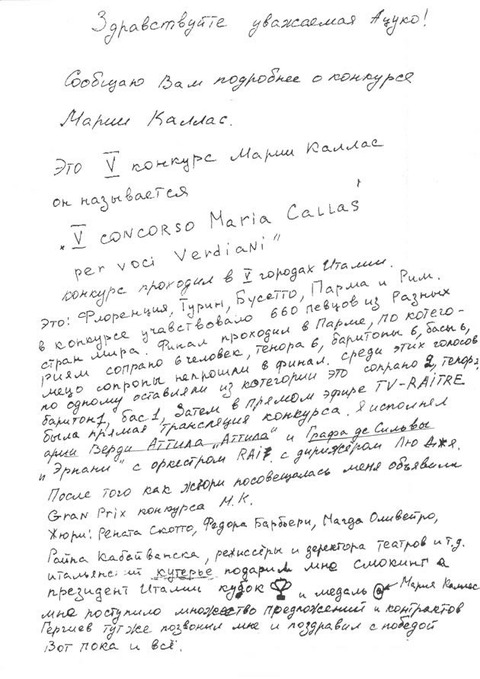 Здравствуйте уважаемая Ацуко!
Сообщаю Вам подробнее о конкурсе
Марии Каллас.
Это V конкурс Марии Каллас
он называется
"V CONCORSO Maria Callas
per voci Verdiani"
конкурс проходил в V городах Италии.
Это: Флоренция, Турин, Бусетто, Парма и Рим.
в конкурсе учавствовало 660 певцов из разных
стран мира. Финал проходил в Парме, по катего-
риям сопрано 6 человек, тенора 6, баритоны 6, басы 6,
мецо сопроны непрошли в финал. среди этих голосов
по одному оставляли из котегории это сопрано 2, тенор 2,
баритон 1, бас 1, Затем в прямом эфире TV-RAiTRE
была прямая трансляция конкурса. Я исполнял
арии Верди Аттила "Аттила" и Графа де Сильвы
и "Эрнани" с оркестром RAi с дирижёром Лю Джя.
После того как жюри посовещалась меня объявили
Gran Prix конкурса М.К.
Жюри: Рената Скотто, Федора Барбьери, Магда Оливейро,
Райна Кабайванска, режиссёры и деректора театров и т.д.
итальянский кутерье подарил мне смокинг а
президент Италии кубок и медаль Мария Каллас
мне поступило множество предложений и контрактов
Гергиев тут же позвонил мне и поздравил с победой
Вот пока и всё.